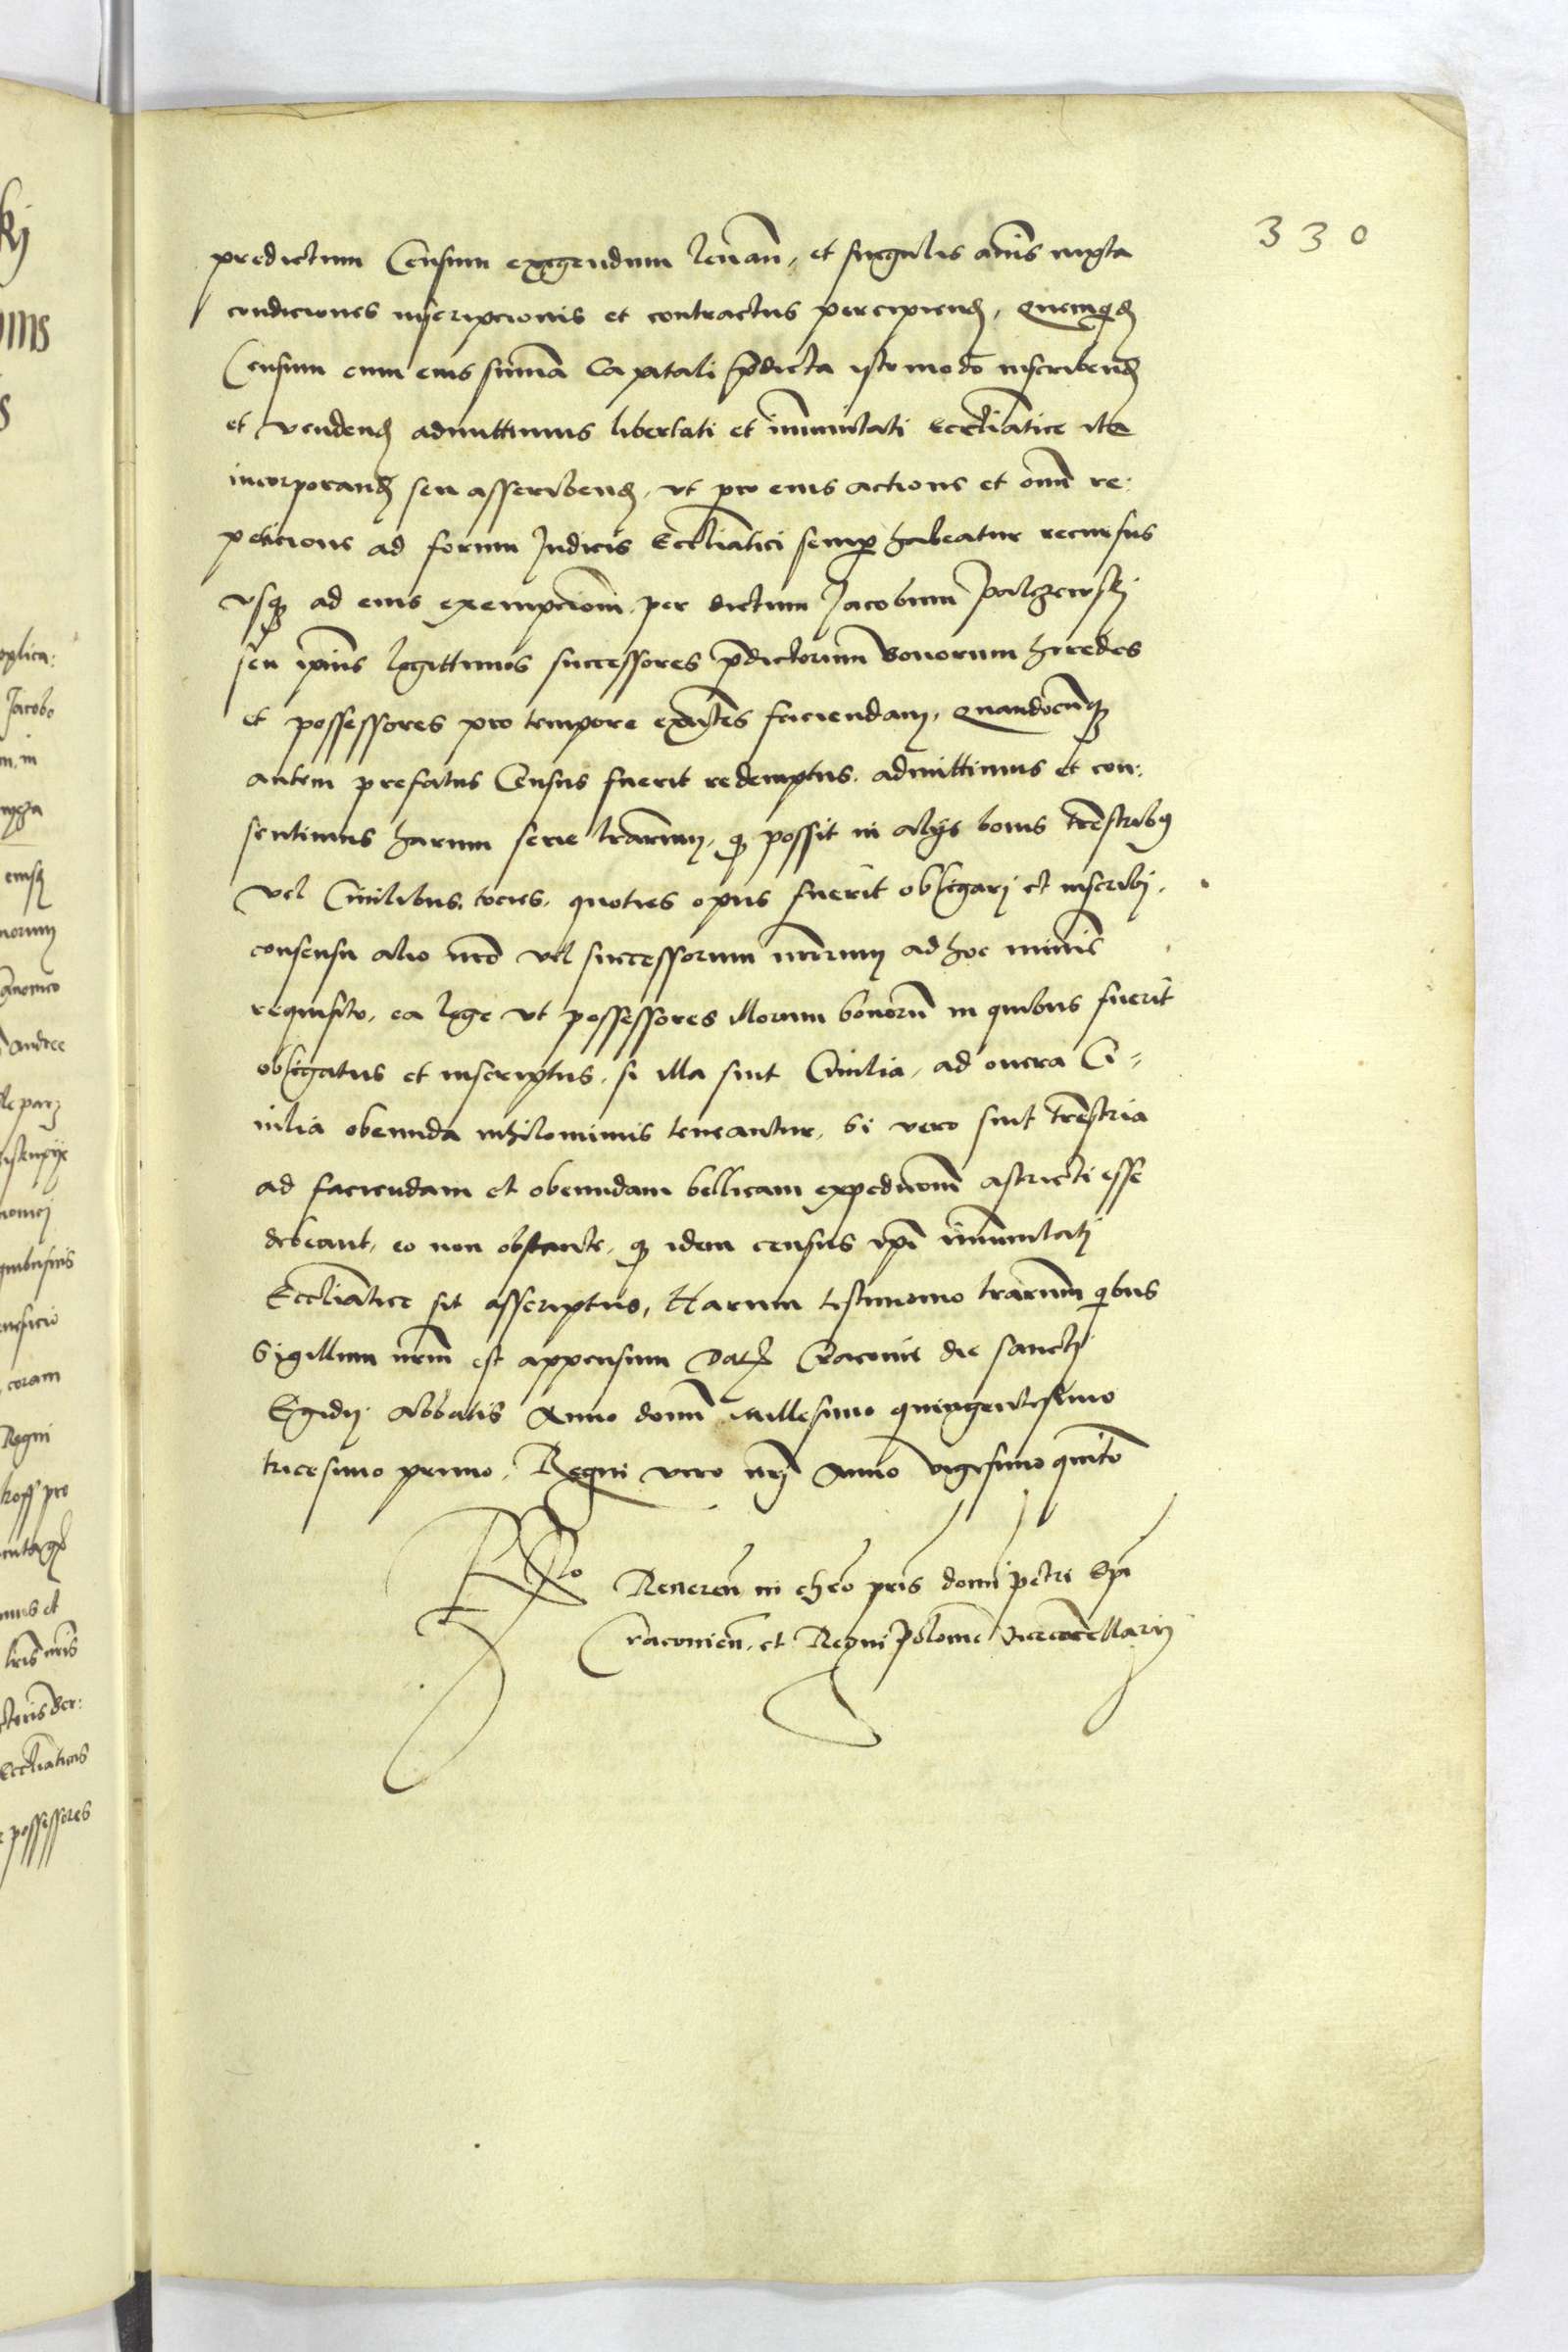 330
predictum Censum exigendum levan̄, et singulis annis iuxta
condiciones inscripcionis et contractus percipiend, Quemquid
Censum cum eius summa Capitali p̄dicta isto modo inscribend
et vendend admittimus libertati et im̄unitati eccl̄iastice ita
incorporand seu asscribend, vt pro eius actione et om̄i re:
peticione ad forum Judicis Eccl̄iastici semp habeatur recursus
vsq ad eius exempcionem per dictum Jacobum Palczewskj
seu ip̄ius legittimos successores p̄dictorum bonorum heredes
et possessores pro tempore existn̄tes faciendam, Quandocunq
autem prefatus Census fuerit redemptus, admittimus et con:
sentimus harum serie l̄rarum, q possit in alijs bonis terrestribus
vel Ciuilibus, tocies, quoties opus fuerit obligarj et inscribj,
consensu alio n̄ro vel successorum n̄rorum ad hoc minime
requisito, ea lege vt possessores illorum bonorū in quibus fuerit
obligatus et inscriptus, si illa sint Ciuilia, ad onera Ci=
uilia obeunda nihilominus teneantur, Si vero sint terrestria
ad faciendam et obeundam bellicam expedicionem astricti esse
debeant, eo non obstante, q idem census ip̄i im̄unitatj
Eccl̄iastice sit asscriptus, Harum testimonio l̄rarum quibus
Sigillum n̄rm est appensum Dat Cracovie die sanctj
Egidij Abbatis Anno domī Millesimo quingentesimo
tricesimo primo, Regni vero n̄rj Anno vigesimo quinto
R̄lo Reueren̄ in chr̄o pr̄is domī petri Ep̄i
Cracouien̄, et Regni Polonie Vicecancellarij